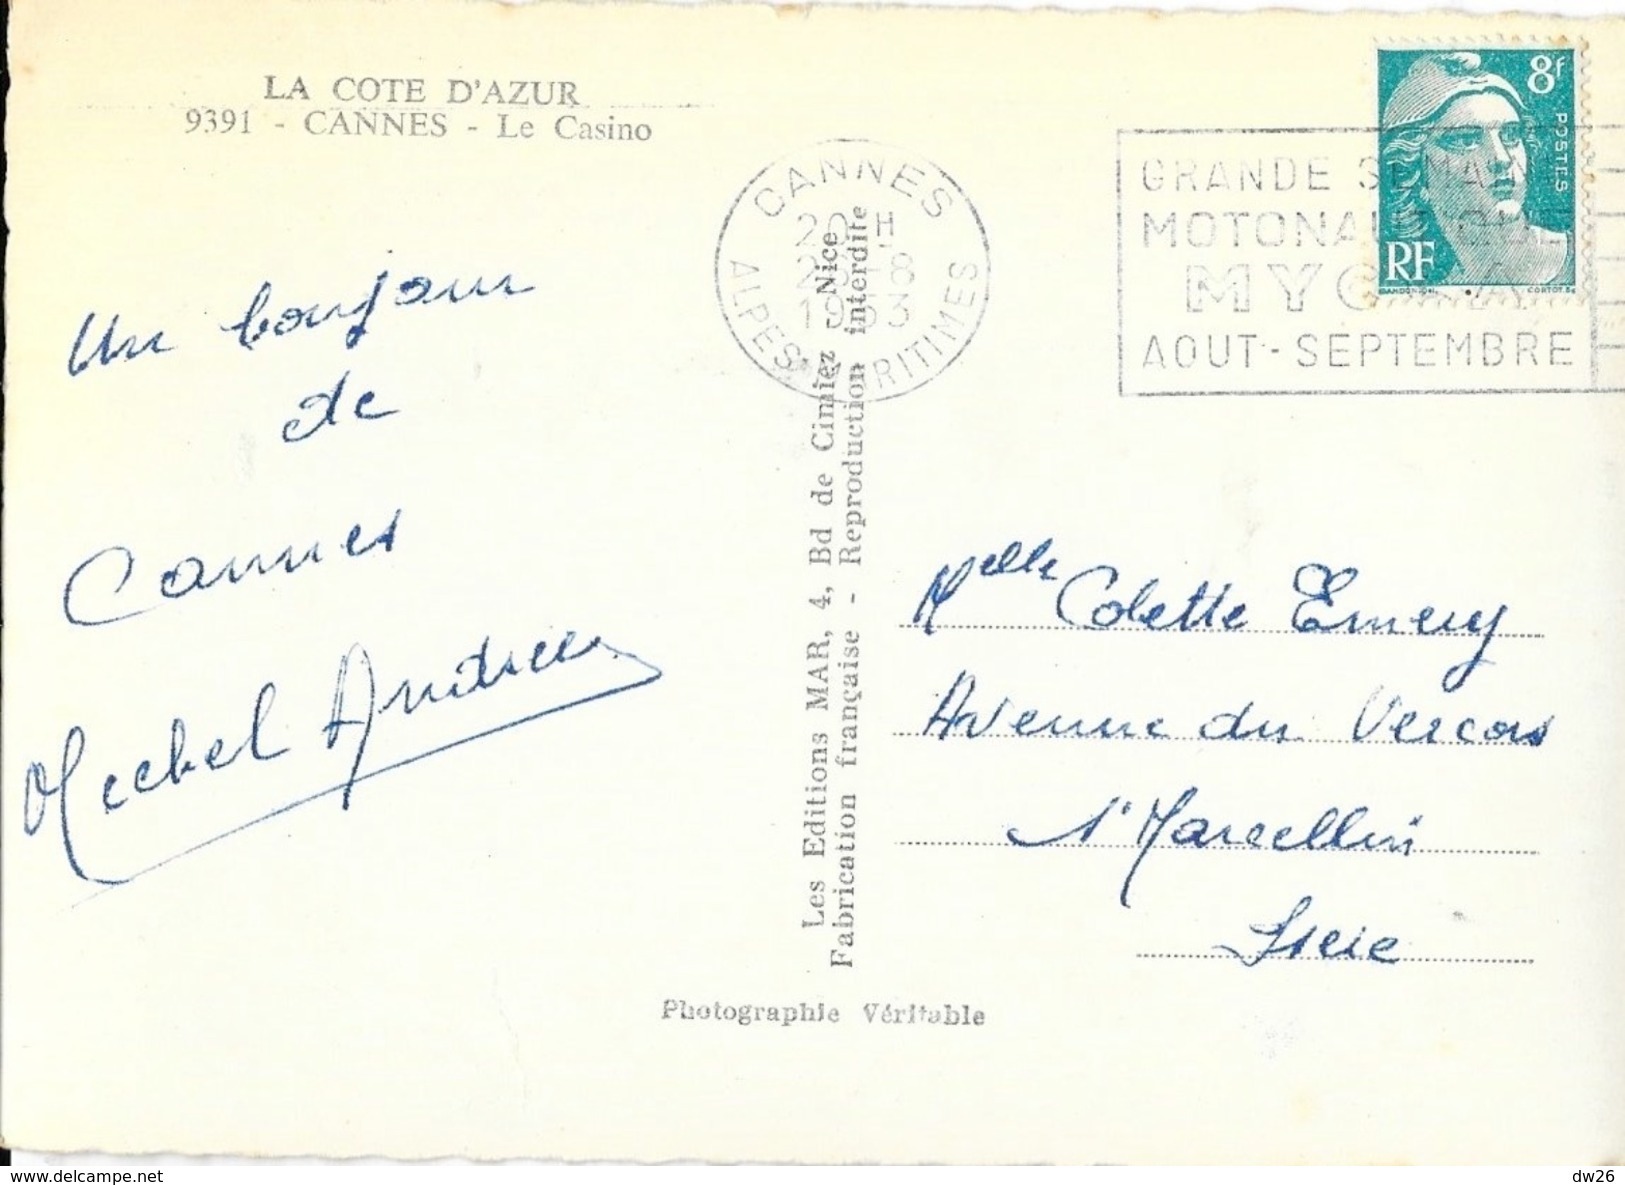 LA COTE D'AZUR
9391 - CANNES - Le Casino
Un bonjour
de
Cannes
Mechel Andrieu
CANNES
20 H
-8
1953
ALPES MARITIMES
GRANDE SEMAINE
MOTONAUTIQUE
AOUT - SEPTEMBRE
8f
POSTES
RF
GANDON
CORTOT
Les Editions MAR, 4, Bd de Cimiez - Nice
Fabrication française - Reproduction interdite
Melle Colette Emery
Avenue du Vercors
St Marcellin
Isere
Photographie Véritable
www.delcampe.net
dw26